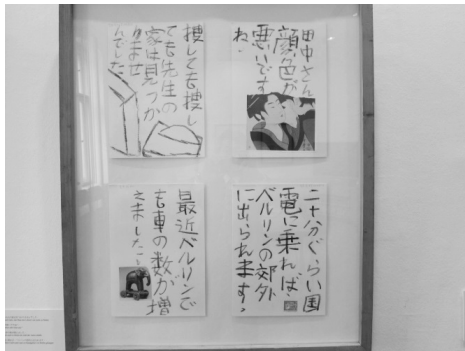 田中さん
顔色が
悪いです
ね。
捜しても捜し
ても先生の
家は見つか
りませ
んでした。
二十分ぐらい国
電に乗れば、
ベルリンの郊外
に出られます。
最近ベルリンで
も車の数が増
えました。